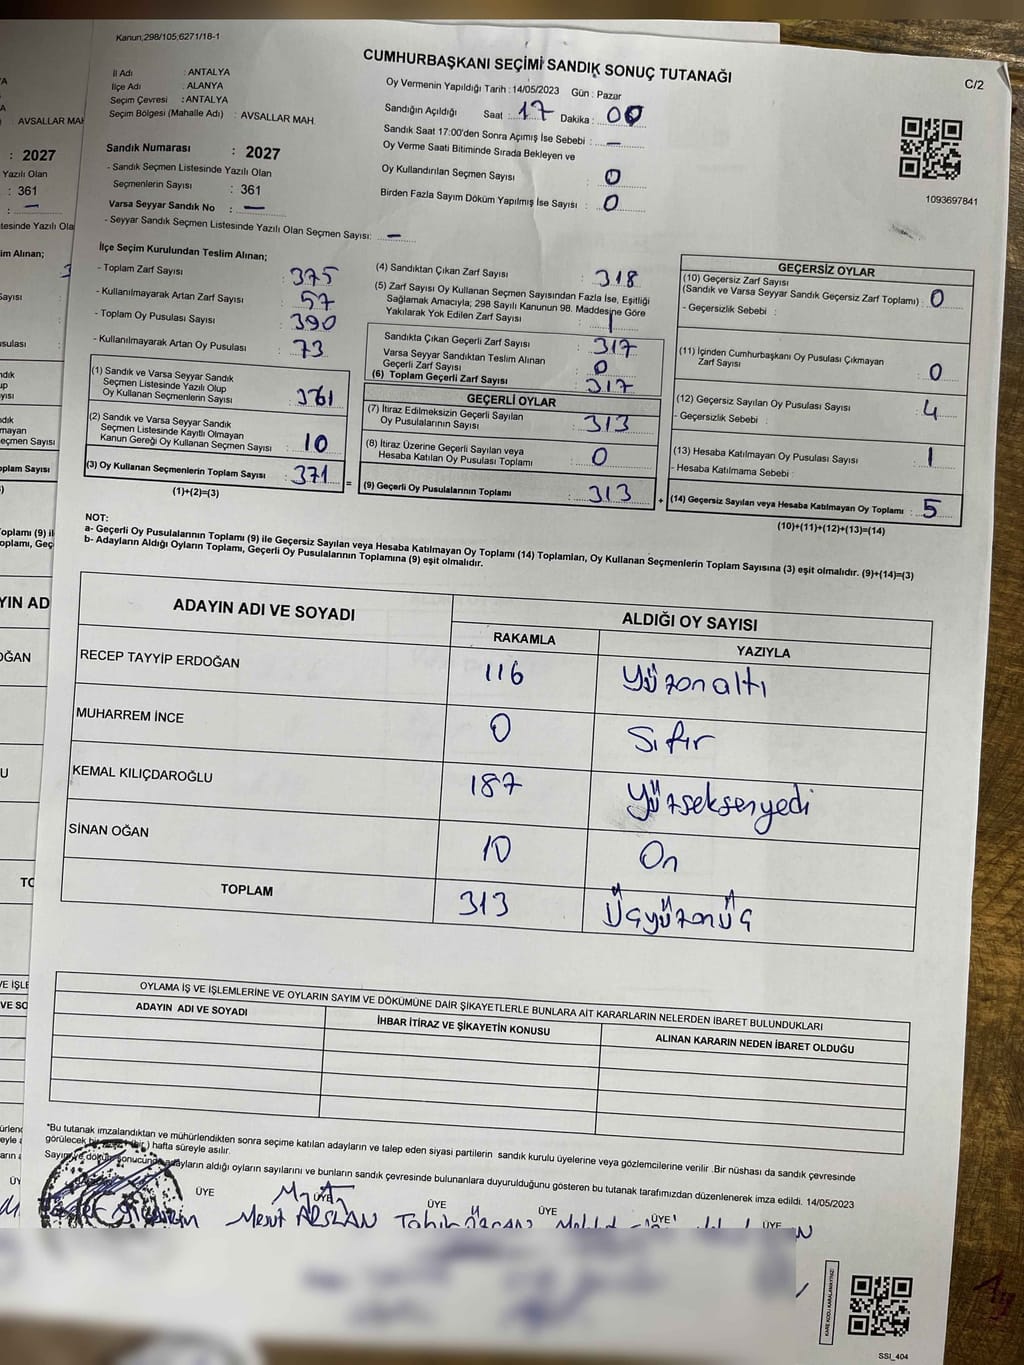 Kanun;298/105;6271/18-1
CUMHURBAŞKANI SEÇİMİ SANDIK SONUÇ TUTANAĞI
C/2
İl Adı : ANTALYA
İlçe Adı : ALANYA
Seçim Çevresi : ANTALYA
Seçim Bölgesi (Mahalle Adı) : AVSALLAR MAH.
Oy Vermenin Yapıldığı Tarih : 14/05/2023 Gün : Pazar
Sandığın Açıldığı Saat : 17 Dakika : 00
Sandık Saat 17:00'den Sonra Açımış İse Sebebi : —
Oy Verme Saati Bitiminde Sırada Bekleyen ve
Oy Kullandırılan Seçmen Sayısı : 0
Birden Fazla Sayım Döküm Yapılmış İse Sayısı : 0
1093697841
Sandık Numarası : 2027
- Sandık Seçmen Listesinde Yazılı Olan
Seçmenlerin Sayısı : 361
Varsa Seyyar Sandık No : —
- Seyyar Sandık Seçmen Listesinde Yazılı Olan Seçmen Sayısı: —
İlçe Seçim Kurulundan Teslim Alınan;
- Toplam Zarf Sayısı : 375
- Kullanılmayarak Artan Zarf Sayısı : 57
- Toplam Oy Pusulası Sayısı : 390
- Kullanılmayarak Artan Oy Pusulası : 73
(1) Sandık ve Varsa Seyyar Sandık
Seçmen Listesinde Yazılı Olup
Oy Kullanan Seçmenlerin Sayısı : 361
(2) Sandık ve Varsa Seyyar Sandık
Seçmen Listesinde Kayıtlı Olmayan
Kanun Gereği Oy Kullanan Seçmen Sayısı : 10
(3) Oy Kullanan Seçmenlerin Toplam Sayısı : 371
(1)+(2)=(3)
(4) Sandıktan Çıkan Zarf Sayısı : 318
(5) Zarf Sayısı Oy Kullanan Seçmen Sayısından Fazla İse, Eşitliği
Sağlamak Amacıyla; 298 Sayılı Kanunun 98. Maddesine Göre
Yakılarak Yok Edilen Zarf Sayısı : 1
Sandıkta Çıkan Geçerli Zarf Sayısı : 317
Varsa Seyyar Sandıktan Teslim Alınan
Geçerli Zarf Sayısı : 0
(6) Toplam Geçerli Zarf Sayısı : 317
GEÇERLİ OYLAR
(7) İtiraz Edilmeksizin Geçerli Sayılan
Oy Pusulalarının Sayısı : 313
(8) İtiraz Üzerine Geçerli Sayılan veya
Hesaba Katılan Oy Pusulası Toplamı : 0
= (9) Geçerli Oy Pusulalarının Toplamı : 313 +
GEÇERSİZ OYLAR
(10) Geçersiz Zarf Sayısı
(Sandık ve Varsa Seyyar Sandık Geçersiz Zarf Toplamı) : 0
- Geçersizlik Sebebi :
(11) İçinden Cumhurbaşkanı Oy Pusulası Çıkmayan
Zarf Sayısı : 0
(12) Geçersiz Sayılan Oy Pusulası Sayısı : 4
- Geçersizlik Sebebi :
(13) Hesaba Katılmayan Oy Pusulası Sayısı : 1
- Hesaba Katılmama Sebebi :
(14) Geçersiz Sayılan veya Hesaba Katılmayan Oy Toplamı : 5
(10)+(11)+(12)+(13)=(14)
NOT:
a- Geçerli Oy Pusulalarının Toplamı (9) ile Geçersiz Sayılan veya Hesaba Katılmayan Oy Toplamı (14) Toplamları, Oy Kullanan Seçmenlerin Toplam Sayısına (3) eşit olmalıdır. (9)+(14)=(3)
b- Adayların Aldığı Oyların Toplamı, Geçerli Oy Pusulalarının Toplamına (9) eşit olmalıdır.
ADAYIN ADI VE SOYADI
ALDIĞI OY SAYISI
RAKAMLA YAZIYLA
RECEP TAYYİP ERDOĞAN 116 Yüzonaltı
MUHARREM İNCE 0 Sıfır
KEMAL KILIÇDAROĞLU 187 Yüzseksenyedi
SİNAN OĞAN 10 On
TOPLAM 313 Üçyüzonüç
OYLAMA İŞ VE İŞLEMLERİNE VE OYLARIN SAYIM VE DÖKÜMÜNE DAİR ŞİKAYETLERLE BUNLARA AİT KARARLARIN NELERDEN İBARET BULUNDUKLARI
ADAYIN ADI VE SOYADI İHBAR İTİRAZ VE ŞİKAYETİN KONUSU ALINAN KARARIN NEDEN İBARET OLDUĞU
*Bu tutanak imzalandıktan ve mühürlendikten sonra seçime katılan adayların ve talep eden siyasi partilerin sandık kurulu üyelerine veya gözlemcilerine verilir .Bir nüshası da sandık çevresinde
görülecek bir ) hafta süreyle asılır.
Sayım ve döküm sonucunda adayların aldığı oyların sayılarını ve bunların sandık çevresinde bulunanlara duyurulduğunu gösteren bu tutanak tarafımızdan düzenlenerek imza edildi. 14/05/2023
ÜYE ÜYE ÜYE ÜYE ÜYE ÜYE
Mert ARSLAN
KARE KODU KARALAMAYINIZ!
SSI_404
AVSALLAR MAH
: 2027
Yazılı Olan
: 361